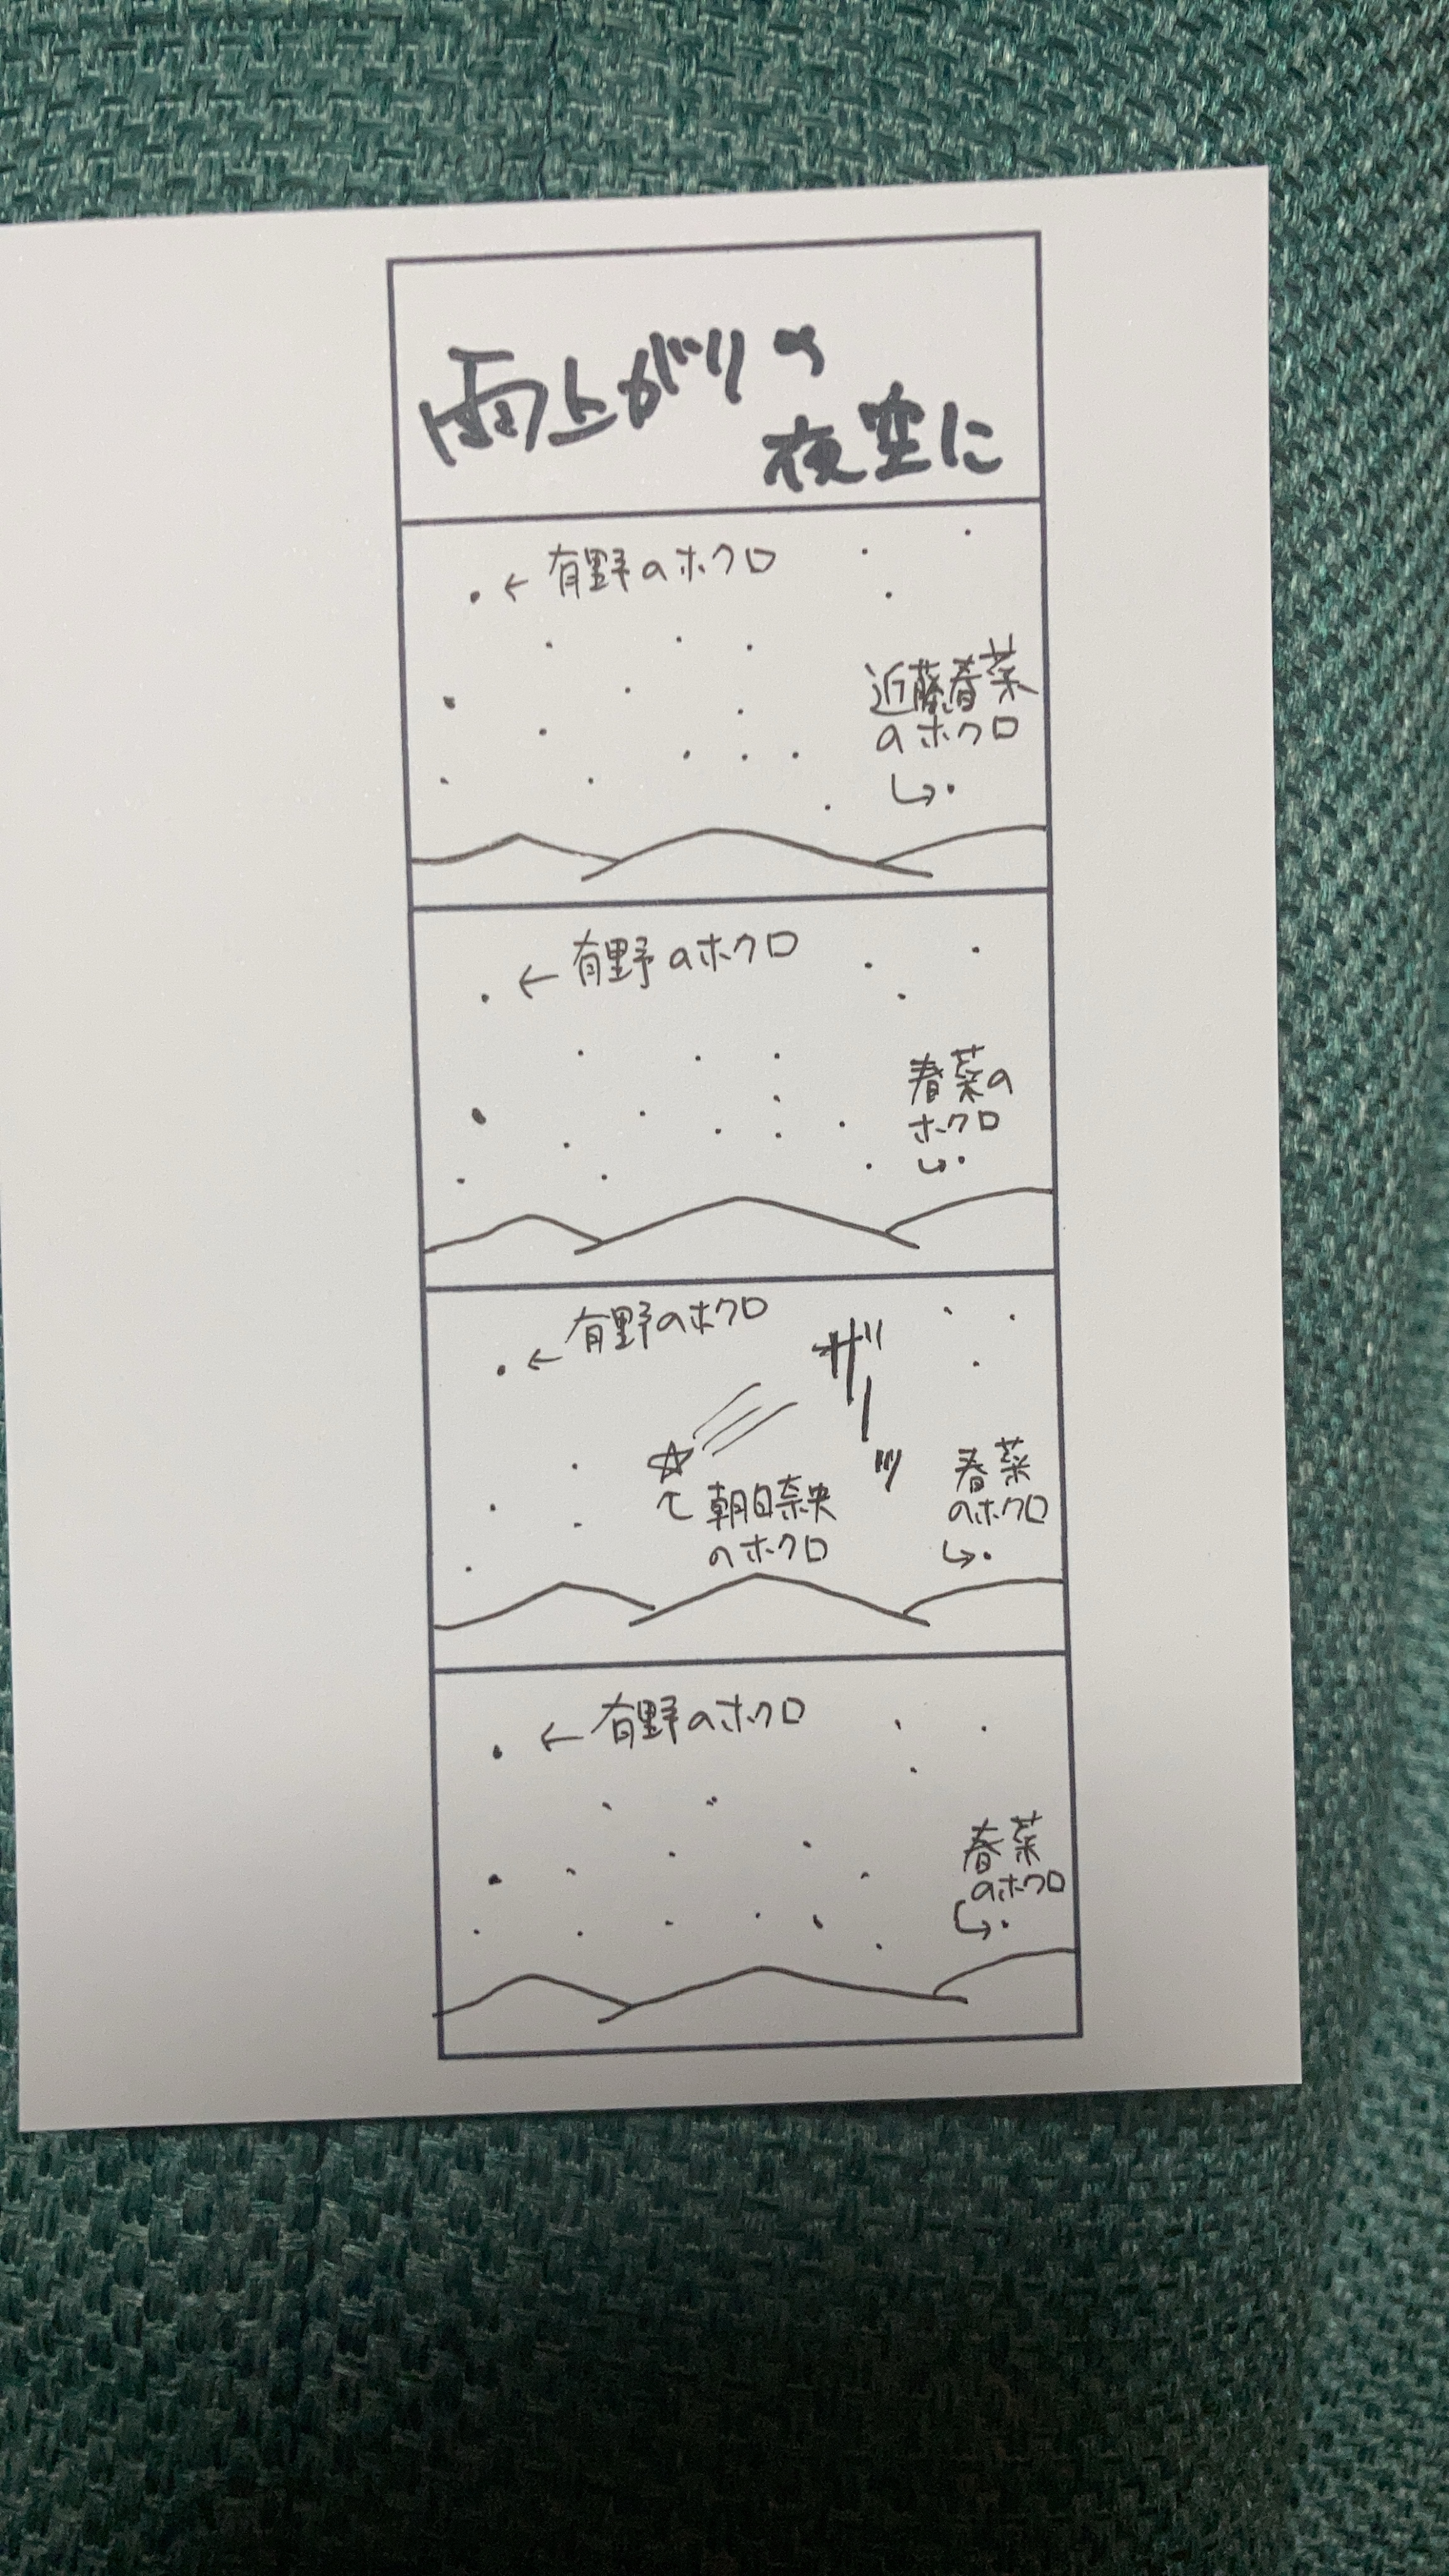 雨上がりの
夜空に
←有野のホクロ
近藤春菜
のホクロ
←有野のホクロ
春菜の
ホクロ
有野のホクロ
←
ザーッ
朝日奈央
のホクロ
春菜
のホクロ
←有野のホクロ
春菜
のホクロ